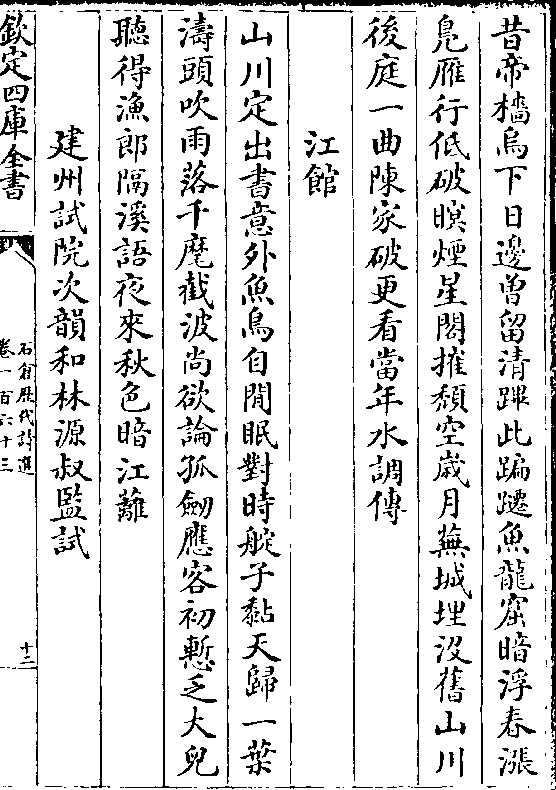 昔帝檣烏下日邊曽留清蹕此蹁躚魚龍窟暗浮春漲
鳬雁行低破暝煙星閣摧頽空嵗月蕪城埋沒舊山川
後庭一曲陳家破更看當年水調傳
江館
山川定出書意外魚鳥自閒眠對時艇子黏天歸一葉
濤頭吹雨落千麾截波尚欲論孤劒應客初慙乏大兕
聽得漁郎隔溪語夜來秋色暗江蘺
建州試院次韻和林源叔監試
欽定四庫全書
石倉歴代詩選
卷一百六十三
十二